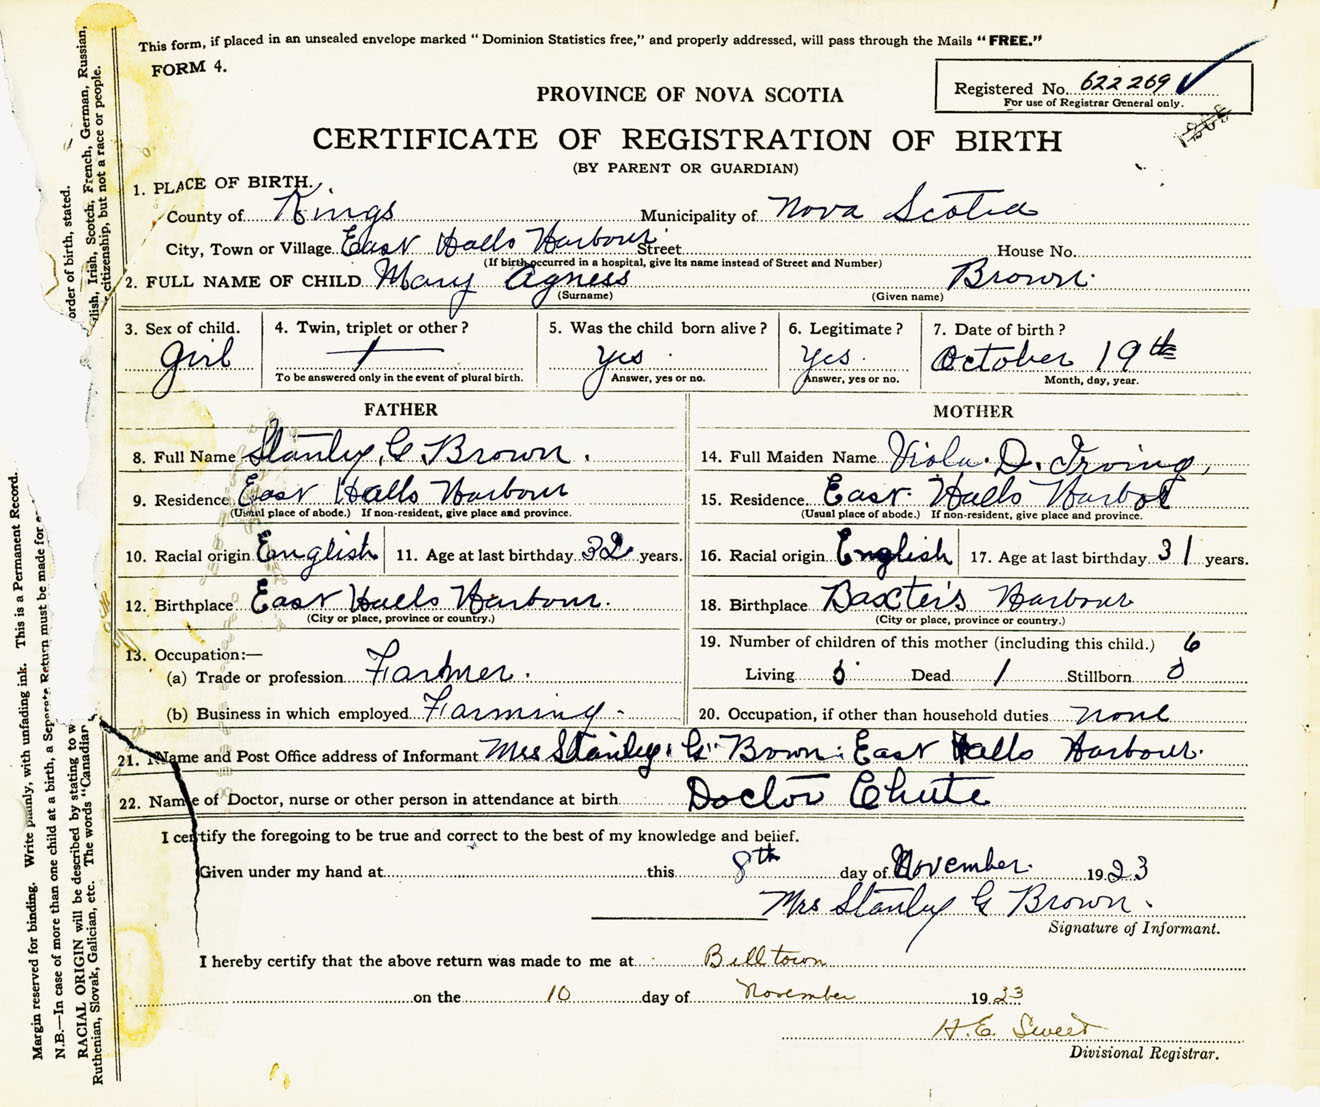 This form, if placed in an unsealed envelope marked "Dominion Statistics free," and properly addressed, will pass through the Mails "FREE."
FORM 4.
Registered No. 622269 ✓
For use of Registrar General only.
PROVINCE OF NOVA SCOTIA
CERTIFICATE OF REGISTRATION OF BIRTH
(BY PARENT OR GUARDIAN)
1. PLACE OF BIRTH.
County of Kings Municipality of Nova Scotia
City, Town or Village East Halls Harbour Street House No.
(If birth occurred in a hospital, give its name instead of Street and Number)
2. FULL NAME OF CHILD Mary Agness Brown
(Surname) (Given name)
3. Sex of child. 4. Twin, triplet or other? 5. Was the child born alive? 6. Legitimate? 7. Date of birth?
Girl Yes Yes October 19th
To be answered only in the event of plural birth. Answer, yes or no. Answer, yes or no. Month, day, year.
FATHER MOTHER
8. Full Name Stanley, G Brown. 14. Full Maiden Name Viola. D. Irving,
9. Residence East Halls Harbour 15. Residence East Halls Harbor
(Usual place of abode.) If non-resident, give place and province. (Usual place of abode.) If non-resident, give place and province.
10. Racial origin English 11. Age at last birthday 32 years. 16. Racial origin English 17. Age at last birthday 31 years.
12. Birthplace East Halls Harbour. 18. Birthplace Baxter's Harbour
(City or place, province or country.) (City or place, province or country.)
13. Occupation:— 19. Number of children of this mother (including this child.) 6
(a) Trade or profession Farmer. Living 5 Dead 1 Stillborn 0
(b) Business in which employed Farming - 20. Occupation, if other than household duties none
21. Name and Post Office address of Informant Mrs Stanley G Brown. East Halls Harbour.
22. Name of Doctor, nurse or other person in attendance at birth Doctor Chute
I certify the foregoing to be true and correct to the best of my knowledge and belief.
Given under my hand at this 8th day of November. 1923
Mrs Stanley G Brown.
Signature of Informant.
I hereby certify that the above return was made to me at Billtown
on the 10 day of November 1923
H. E. Sweet
Divisional Registrar.
Margin reserved for binding. Write plainly, with unfading ink. This is a Permanent Record.
N.B.—In case of more than one child at a birth, a Separate Return must be made for
order of birth, stated.
RACIAL ORIGIN will be described by stating to
lish, Irish, Scotch, French, German, Russian,
Ruthenian, Slovak, Galician, etc. The words "Canadian
citizenship, but not a race or people.